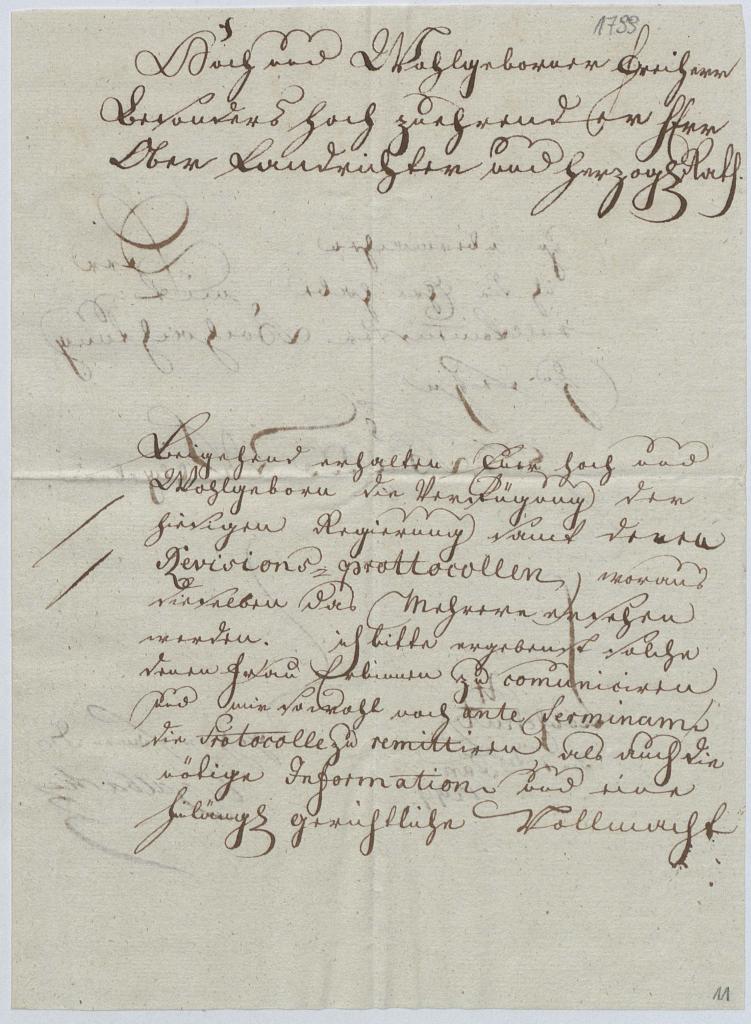 1799
Hoch und Wohlgeborner Freiherr
Besonders hoch zuehrend er Herr
Ober Landrichter und herzogl. Rath.
Beigehend erhalten Euer hoch und
Wohlgeborn die Verfügung der
hiesigen Regierung samt denen
Revisions=prottocollen, woraus
dieselben das Mehrere ersehen
werden. ich bitte ergebenst solche
denen Frau Erbinnen zu comuniciren
und mir sowohl noch ante Terminum
die Protocolle zu remittiren, als auch die
nötige Information, und eine
hinlängl. gerichtliche Vollmacht
11